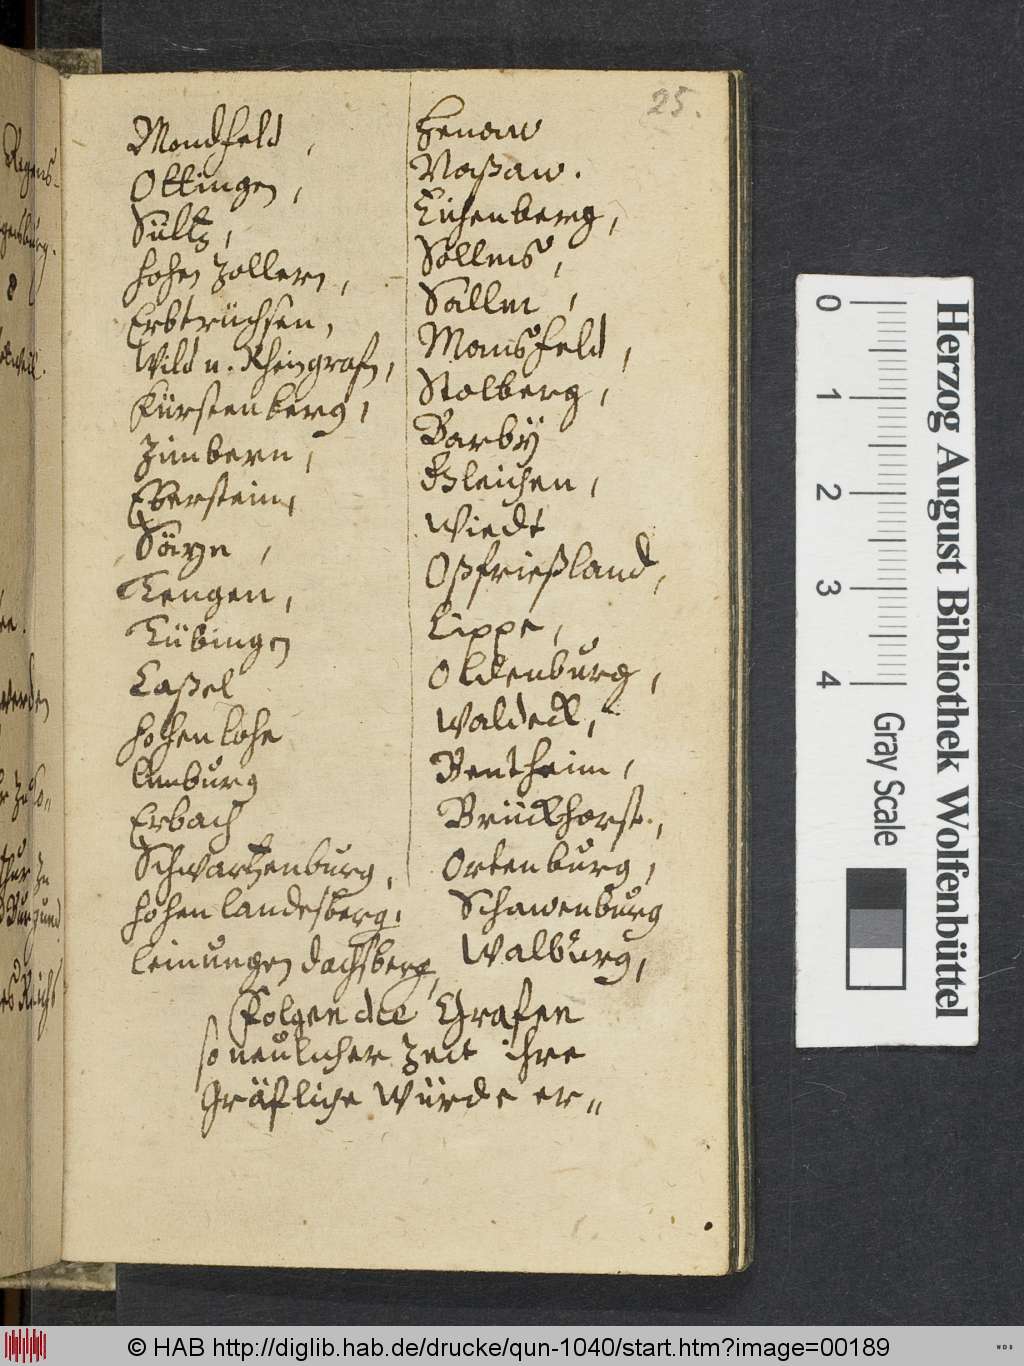 25.
Mondfeld,
Ottingen,
Sültz,
Hohen Zollern,
Erbtrüchsen,
Wild u. Rheingrafn,
Fürstenberg,
Zimbern,
Eberstein,
Sayn,
Tengen,
Tübingen
Caßel
Hohenlohe
Limburg
Erbach
Schwartzenburg,
Hohenlandesberg,
Leinungen Dachsberg,
Henaw
Naßaw.
Eichenberg,
Sollms,
Sallm,
Mansfeld,
Stolberg,
Barbÿ
Gleichen,
Wiedt
Oßfrießland,
Lippe,
Oldenburg,
Waldeck,
Bentheim,
Brückhorst,
Ortenburg,
Schawenburg
Walburg,
Folgen die Grafen
so neulicher Zeit ihre
Gräfliche Würde er„
0 1 2 3 4
Gray Scale
Herzog August Bibliothek Wolfenbüttel
© HAB http://diglib.hab.de/drucke/qun-1040/start.htm?image=00189